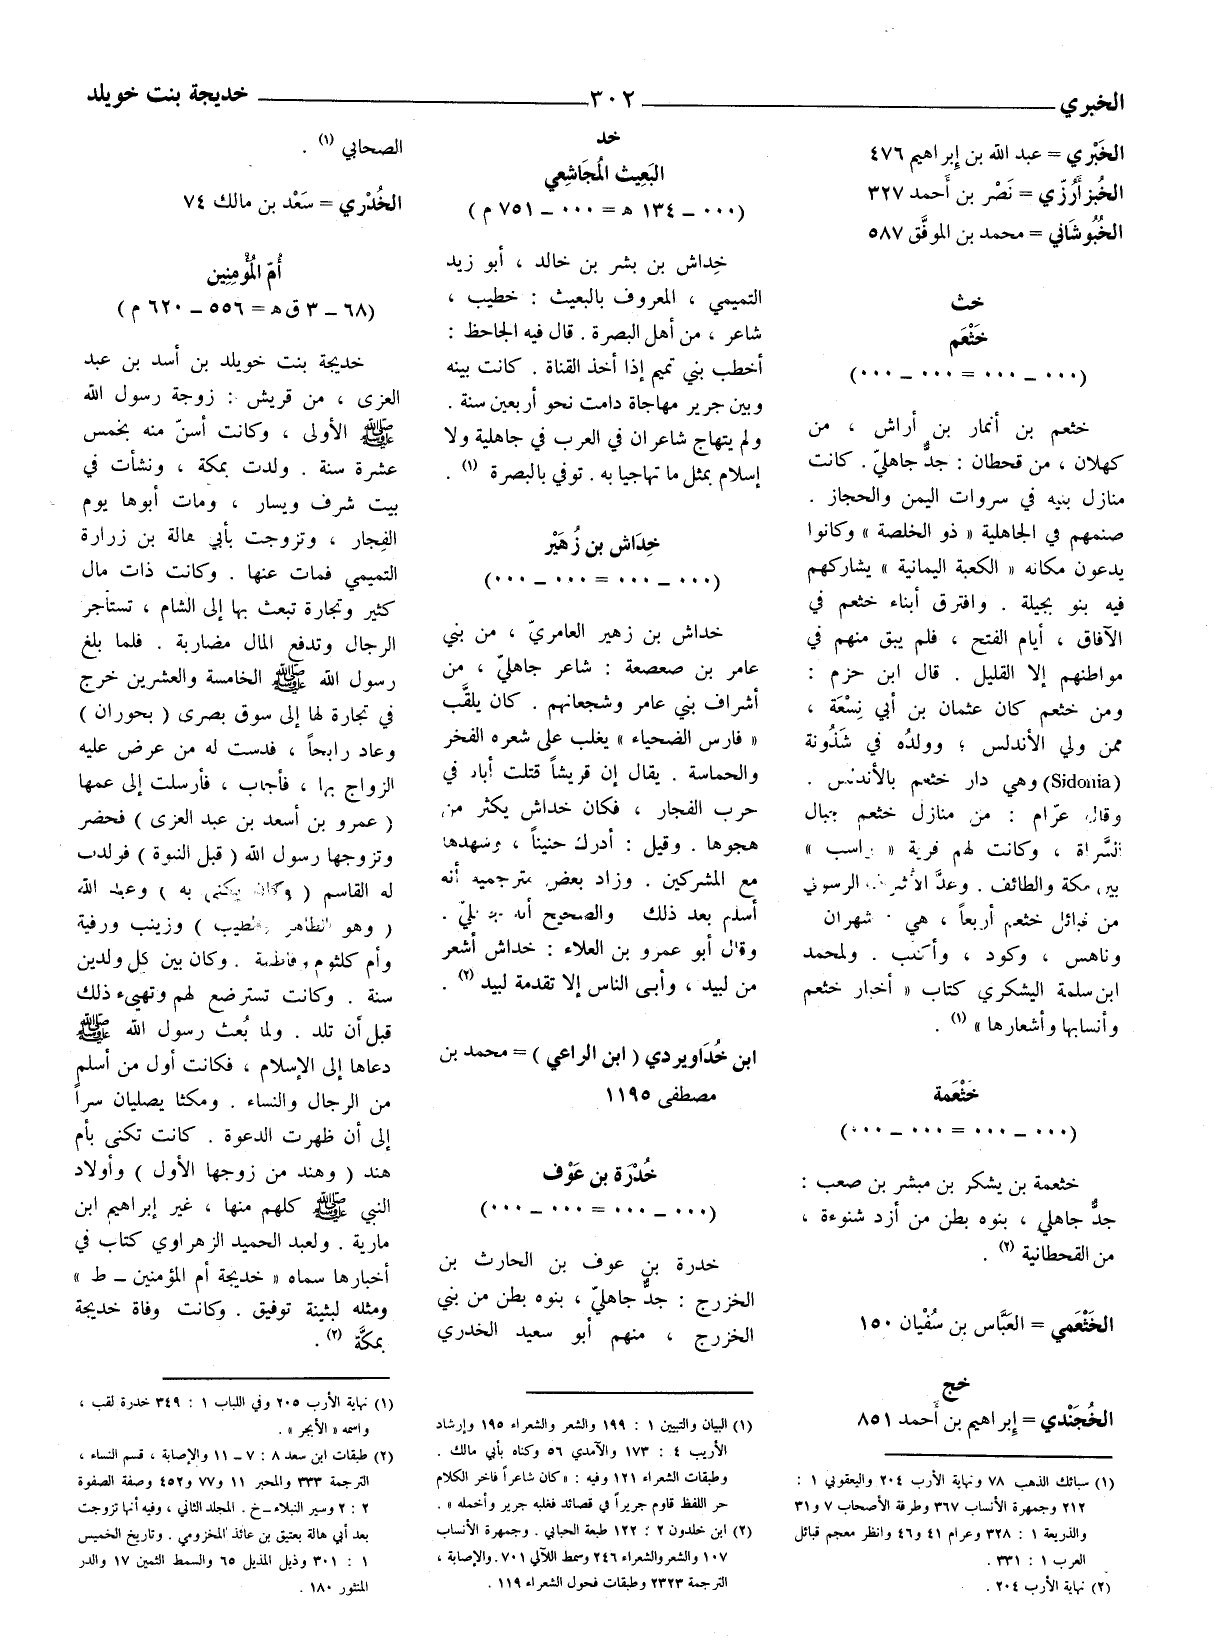 الخبري
٣٠٢
خديجة بنت خويلد
الخَبْري = عبد الله بن إِبراهيم ٤٧٦
الخُبزأَرُزّي = نَصْر بن أَحمد ٣٢٧
الخُبُوشَاني = محمد بن الموفَّق ٥٨٧
خث
خَثْعَم
(٠٠٠ ــ ٠٠٠ = ٠٠٠ ــ ٠٠٠)
خثعم بن أنمار بن أراش ، من
كهلان ، من قحطان : جدٌّ جاهليّ . كانت
منازل بنيه في سروات اليمن والحجاز .
صنمهم في الجاهلية « ذو الخلصة » وكانوا
يدعون مكانه « الكعبة اليمانية » يشاركهم
فيه بنو بجيلة . وافترق أبناء خثعم في
الآفاق ، أيام الفتح ، فلم يبق منهم في
مواطنهم إلا القليل . قال ابن حزم :
ومن خثعم كان عثمان بن أبي نِسْعَة ،
ممن ولي الأندلس ؛ وولدُه في شَذُونة
(Sidonia) وهي دار خثعم بالأندلس .
وقال عرّام : من منازل خثعم جبال
السَّراة ، وكانت لهم قرية « راسب »
بين مكة والطائف . وعدَّ الأشرف الرسولي
من قبائل خثعم أربعاً ، هي : شهران
وناهس ، وكود ، وأكلب . ولمحمد
ابن سلمة اليشكري كتاب « أخبار خثعم
وأنسابها وأشعارها » (١) .
خَثْعَمة
(٠٠٠ ــ ٠٠٠ = ٠٠٠ ــ ٠٠٠)
خثعمة بن يشكر بن مبشر بن صعب :
جدٌّ جاهلي ، بنوه بطن من أزد شنوءة ،
من القحطانية (٢) .
الخَثْعَمي = العَبَّاس بن سُفْيان ١٥٠
خج
الخُجَنْدي = إِبراهيم بن أَحمد ٨٥١
(١) سبائك الذهب ٧٨ ونهاية الأرب ٢٠٤ واليعقوبي ١ :
٢١٢ وجمهرة الأنساب ٣٦٧ وطرفة الأصحاب ٧ و٣١
والذريعة ١ : ٣٢٨ وعرام ٤١ و٤٦ وانظر معجم قبائل
العرب ١ : ٣٣١ .
(٢) نهاية الأرب ٢٠٤ .
خد
البَعِيث المُجَاشِعي
(٠٠٠ ــ ١٣٤ هـ = ٠٠٠ ــ ٧٥١ م)
خِداش بن بشر بن خالد ، أبو زيد
التميمي ، المعروف بالبعيث : خطيب ،
شاعر ، من أهل البصرة . قال فيه الجاحظ :
أخطب بني تميم إذا أخذ القناة . كانت بينه
وبين جرير مهاجاة دامت نحو أربعين سنة .
ولم يتهاج شاعران في العرب في جاهلية ولا
إسلام بمثل ما تهاجيا به . توفي بالبصرة (١) .
خِدَاش بن زُهَيْر
(٠٠٠ ــ ٠٠٠ = ٠٠٠ ــ ٠٠٠)
خداش بن زهير العامريّ ، من بني
عامر بن صعصعة : شاعر جاهليّ ، من
أشراف بني عامر وشجعانهم . كان يلقَّب
« فارس الضحياء » يغلب على شعره الفخر
والحماسة . يقال إن قريشاً قتلت أباه في
حرب الفجار ، فكان خداش يكثر من
هجوها . وقيل : أدرك حنيناً ، وشهدها
مع المشركين . وزاد بعض مترجميه أنه
أسلم بعد ذلك والصحيح أنه جاهليّ .
وقال أبو عمرو بن العلاء : خداش أشعر
من لبيد ، وأبى الناس إلا تقدمة لبيد (٢) .
ابن خُدَاويردي ( ابن الراعي ) = محمد بن
مصطفى ١١٩٥
خُدْرَة بن عَوْف
(٠٠٠ ــ ٠٠٠ = ٠٠٠ ــ ٠٠٠)
خدرة بن عوف بن الحارث بن
الخزرج : جدٌّ جاهليّ ، بنوه بطن من بني
الخزرج ، منهم أبو سعيد الخدري
(١) البيان والتبيين ١ : ١٩٩ والشعر والشعراء ١٩٥ وإرشاد
الأريب ٤ : ١٧٣ والآمدي ٥٦ وكناه بأبي مالك .
وطبقات الشعراء ١٢١ وفيه : « كان شاعراً فاخر الكلام
حر اللفظ قاوم جريراً في قصائد فغلبه جرير وأخمله » .
(٢) ابن خلدون ٢ : ١٢٢ طبعة الحبابي . وجمهرة الأنساب
١٠٧ والشعر والشعراء ٢٤٦ وسمط اللآلي ٧٠١ . والإصابة ،
الترجمة ٢٣٢٣ وطبقات فحول الشعراء ١١٩ .
الصحابي (١) .
الخُدْري = سَعْد بن مالك ٧٤
أُمّ المُؤْمِنِين
(٦٨ ــ ٣ ق هـ = ٥٥٦ ــ ٦٢٠ م)
خديجة بنت خويلد بن أسد بن عبد
العزى ، من قريش : زوجة رسول الله
ﷺ الأولى ، وكانت أسنّ منه بخمس
عشرة سنة . ولدت بمكة ، ونشأت في
بيت شرف ويسار ، ومات أبوها يوم
الفِجار ، وتزوجت بأبي هالة بن زرارة
التميمي فمات عنها . وكانت ذات مال
كثير وتجارة تبعث بها إلى الشام ، تستأجر
الرجال وتدفع المال مضاربة . فلما بلغ
رسول الله ﷺ الخامسة والعشرين خرج
في تجارة لها إلى سوق بصرى ( بحوران )
وعاد رابحاً ، فدست له من عرض عليه
الزواج بها ، فأجاب ، فأرسلت إلى عمها
( عمرو بن أسعد بن عبد العزى ) فحضر
وتزوجها رسول الله ( قبل النبوة ) فولدت
له القاسم ( وكان يكنى به ) وعبد الله
( وهو الطاهر والطيب ) وزينب ورقية
وأم كلثوم وفاطمة . وكان بين كل ولدين
سنة . وكانت تسترضع لهم وتهيء ذلك
قبل أن تلد . ولما بُعث رسول الله ﷺ
دعاها إلى الإسلام ، فكانت أول من أسلم
من الرجال والنساء . ومكثا يصليان سراً
إلى أن ظهرت الدعوة . كانت تكنى بأم
هند ( وهند من زوجها الأول ) وأولاد
النبي ﷺ كلهم منها ، غير إبراهيم ابن
مارية . ولعبد الحميد الزهراوي كتاب في
أخبارها سماه « خديجة أم المؤمنين ــ ط »
ومثله لبثينة توفيق . وكانت وفاة خديجة
بمكَّة (٢) .
(١) نهاية الأرب ٢٠٥ وفي اللباب ١ : ٣٤٩ خدرة لقب ،
واسمه « الأبجر » .
(٢) طبقات ابن سعد ٨ : ٧ ــ ١١ والإصابة ، قسم النساء ،
الترجمة ٣٣٣ والمحبر ١١ و٧٧ و٤٥٢ وصفة الصفوة
٢ : ٢ وسير النبلاء ــ خ . المجلد الثاني ، وفيه أنها تزوجت
بعد أبي هالة بعتيق بن عائذ المخزومي . وتاريخ الخميس
١ : ٣٠١ وذيل المذيل ٦٥ والسمط الثمين ١٧ والدر
المنثور ١٨٠ .